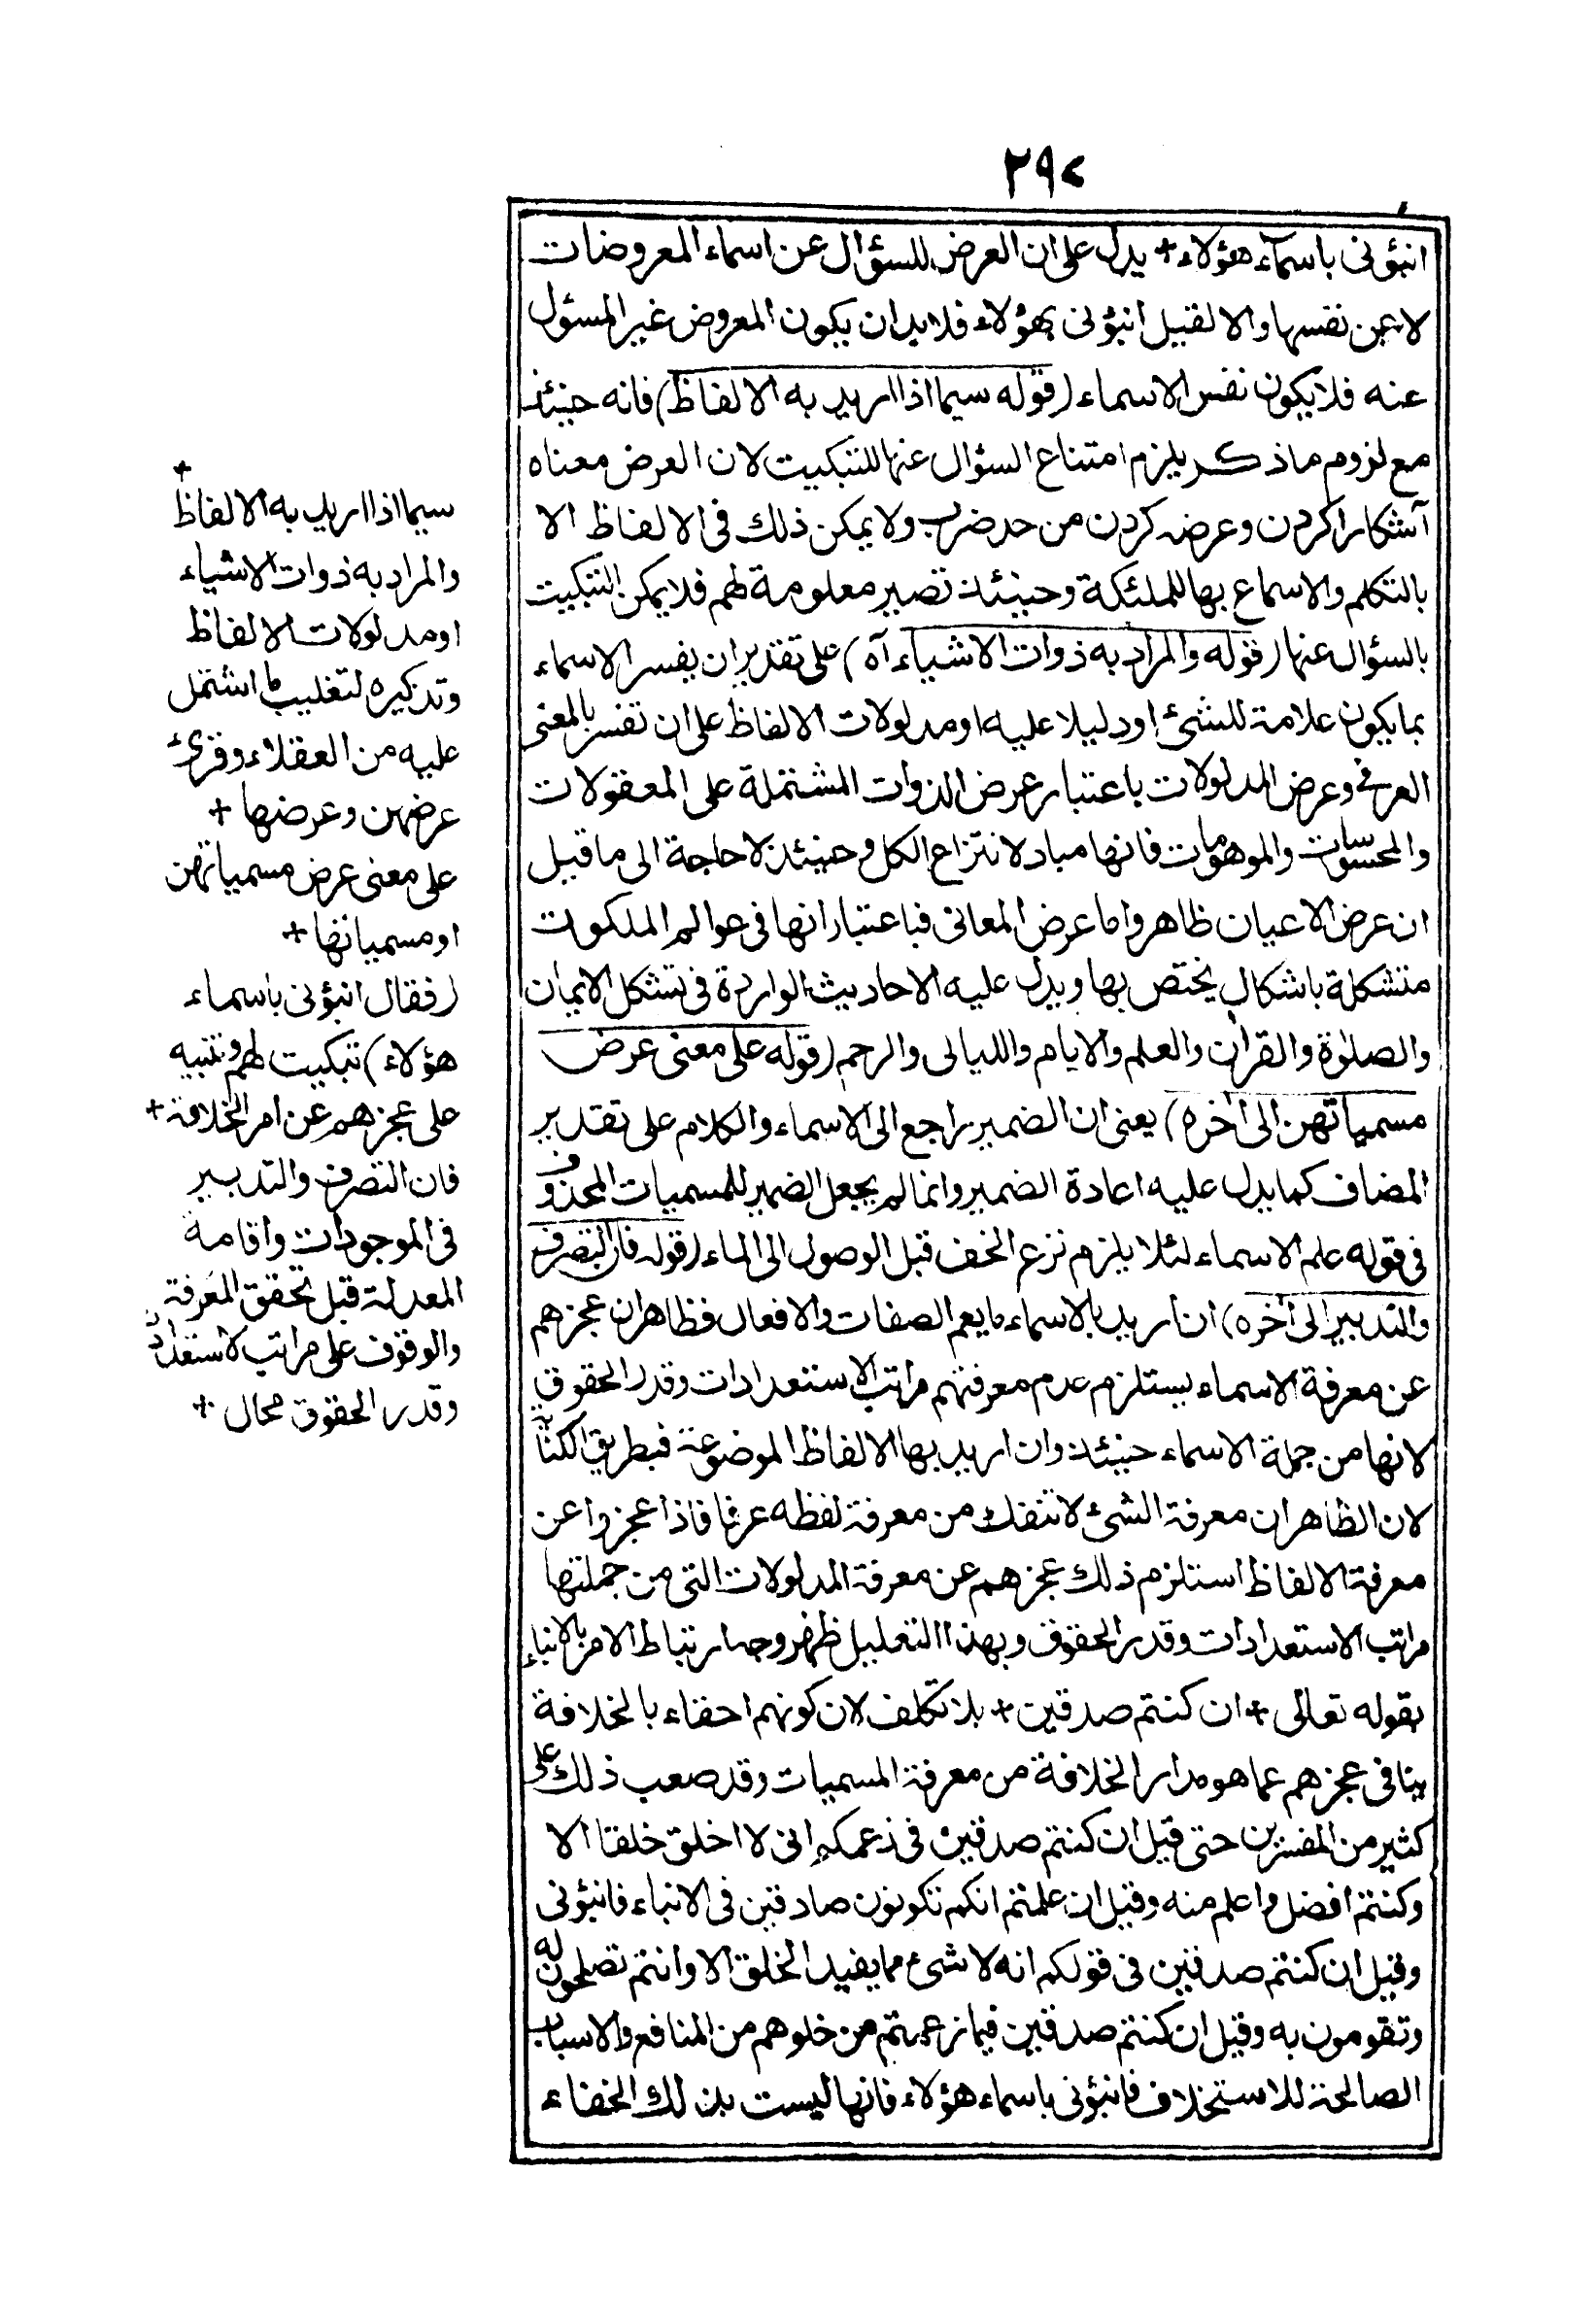 ٢٩٧
انبؤنى باسمآء هؤلاء + يدل على ان العرض للسؤال عن اسماء المعروضات
لا عن نفسها والا لقيل انبؤنى بهؤلاء فلا بد ان يكون المعروض غير المسئول
عنه فلا يكون نفس الاسماء (قوله سيما اذا اريد به الالفاظ) فانه حينئذ
مع لزوم ما ذكر يلزم امتناع السؤال عنها للتبكيت لان العرض معناه
آشكارا كردن وعرضه كردن من حد ضرب ولا يمكن ذلك فى الالفاظ الا
بالتكلم والاسماع بها للملئكة وحينئذ تصير معلومة لهم فلا يمكن التبكيت
بالسؤال عنها (قوله والمراد به ذوات الاشياء آه) على تقدير ان يفسر الاسماء
بما يكون علامة للشئ او دليلا عليه او مدلولات الالفاظ على ان تفسر بالمعنى
العرفى وعرض المدلولات باعتبار عرض الذوات المشتملة على المعقولات
والمحسوسات والموهومات فانها مباد لانتزاع الكل وحينئذ لا حاجة الى ما قيل
ان عرض الاعيان ظاهر واما عرض المعانى فباعتبار انها فى عوالم الملكوت
متشكلة باشكال يختص بها ويدل عليه الاحاديث الواردة فى تشكل الايمان
والصلوة والقران والعلم والايام والليالى والرحم (قوله على معنى عرض
مسمياتهن الى اخره) يعنى ان الضمير راجع الى الاسماء والكلام على تقدير
المضاف كما يدل عليه اعادة الضمير وانما لم يجعل الضمير للمسميات المحذوف
فى قوله علم الاسماء لئلا يلزم نزع الخف قبل الوصول الى الماء (قوله فان التصرف
والتدبير الى اخره) ان اريد بالاسماء ما يعم الصفات والافعال فظاهر ان عجزهم
عن معرفة الاسماء يستلزم عدم معرفتهم مراتب الاستعدادات وقدر الحقوق
لانها من جملة الاسماء حينئذ وان اريد بها الالفاظ الموضوعة فبطريق الكناية
لان الظاهر ان معرفة الشئ لا تنفك من معرفة لفظه عرفا فاذا عجزوا عن
معرفة الالفاظ استلزم ذلك عجزهم عن معرفة المدلولات التى من جملتها
مراتب الاستعدادات وقدر الحقوق وبهذا التعليل ظهر وجه ارتباط الامر بالانباء
بقوله تعالى + ان كنتم صدقين + بلا تكلف لان كونهم احقاء بالخلافة
ينافى عجزهم عما هو مدار الخلافة من معرفة المسميات وقد صعب ذلك على
كثير من المفسرين حتى قيل ان كنتم صدقين فى زعمكم انى لا اخلق خلقا الا
وكنتم افضل واعلم منه وقيل ان علمتم انكم تكونون صادقين فى الانباء فانبؤنى
وقيل ان كنتم صدقين فى قولكم انه لا شئ مما يفيد الخلق الا وانتم تصلحون له
وتقومون به وقيل ان كنتم صدقين فيما زعمتم من خلوهم من المنافع والاسباب
الصالحة للاستخلاف فانبؤنى باسماء هؤلاء فانها ليست بذلك الخفاء
+
سيما اذا اريد به الالفاظ
والمراد به ذوات الاشياء
او مدلولات الالفاظ
وتذكيره لتغليب ما اشتمل
عليه من العقلاء وقرئ
عرضهن وعرضها +
على معنى عرض مسمياتهن
او مسمياتها +
(فقال انبؤنى باسماء
هؤلاء) تبكيت لهم وتنبيه
على عجزهم عن امر الخلافة +
فان التصرف والتدبير
فى الموجودات واقامة
المعدلة قبل تحقق المعرفة
والوقوف على مراتب الاستعدادات
وقدر الحقوق محال +